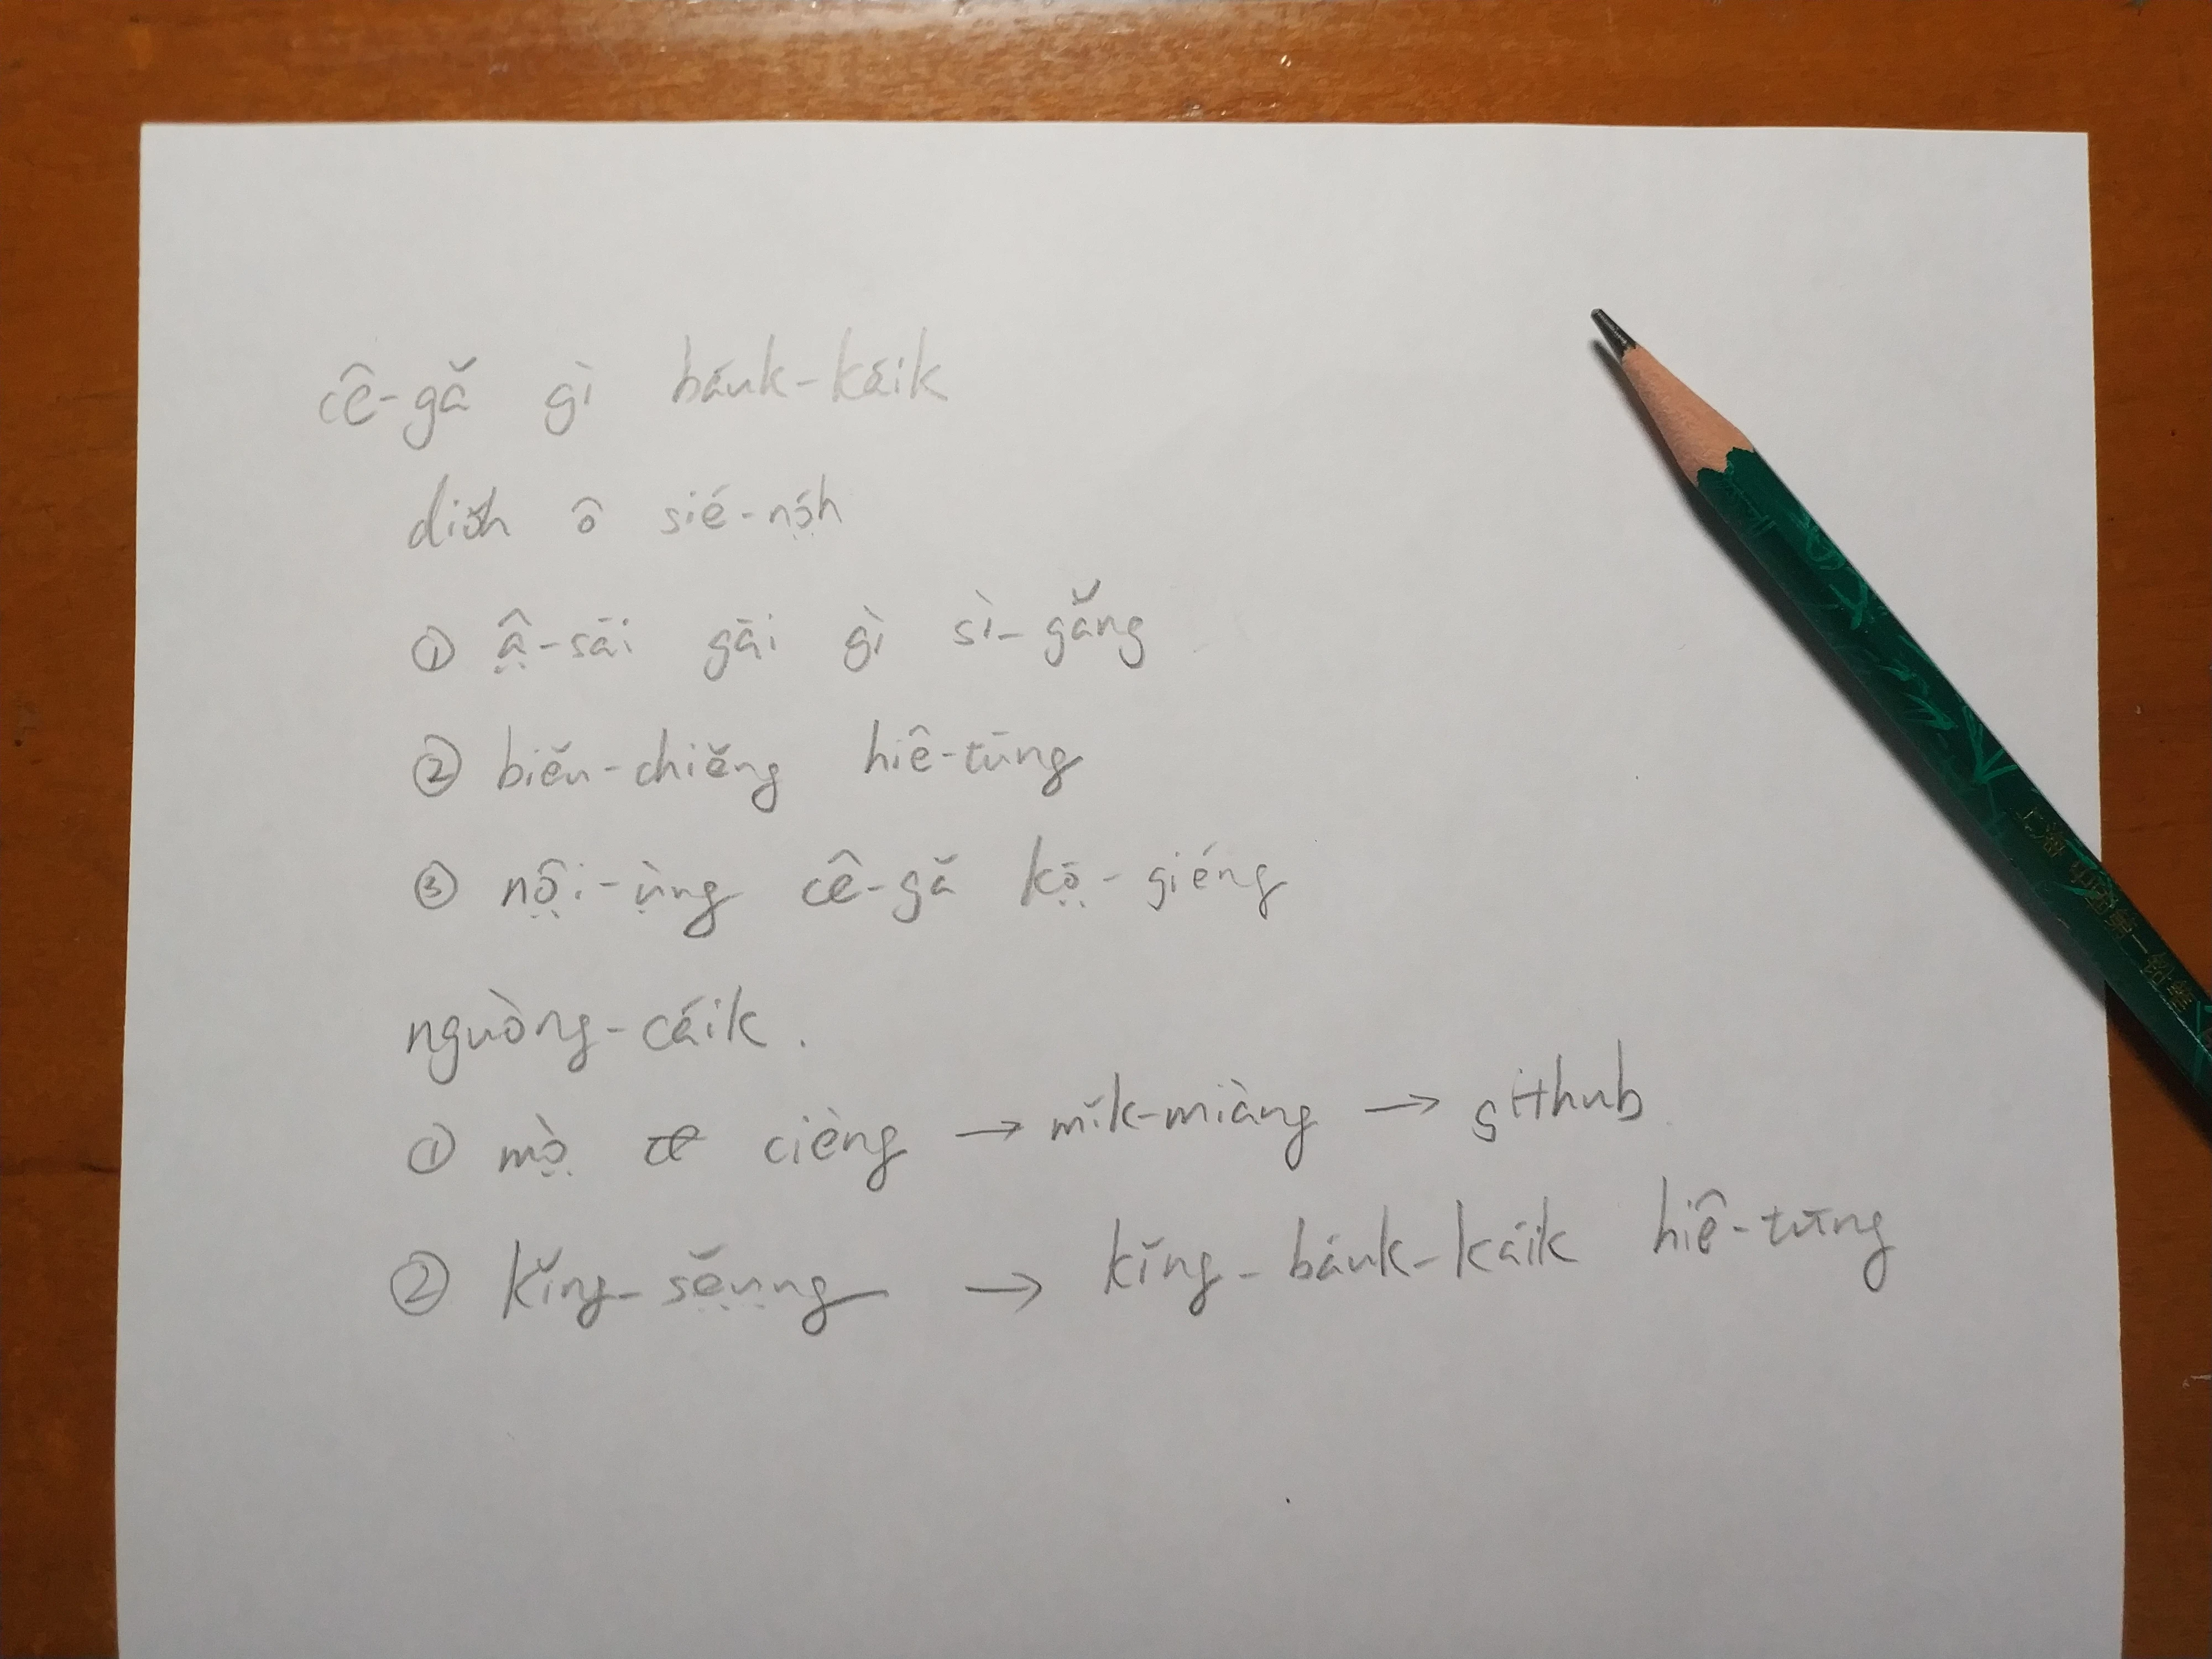 cê-gă gì báuk-káik
diŏh ô sié-nó̤h
① â̤-sāi gāi gì sì-găng
② biĕu-chiĕng hiê-tūng
③ nô̤i-ṳ̀ng cê-gă kō̤-giéng
nguòng-cáik.
① mò̤ cièng → mĭk-miàng → github
② kĭng-sĕ̤ṳng → kĭng-báuk-káik hiê-tūng
上海 中国第一铅笔